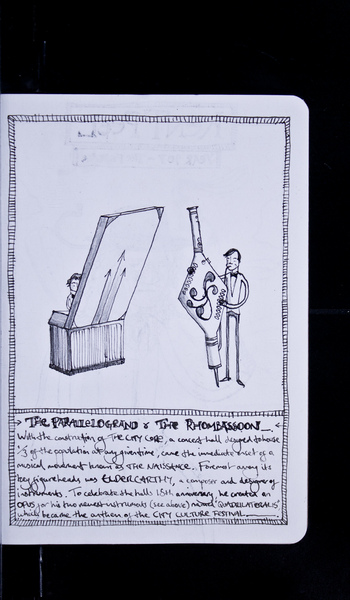 THE PARALLELOGRAND & THE RHOMBASSOON
With the construction of THE CITY CORE, a concert hall designed to house
1/3 of the population at any given time, came the immediate need of a
musical movement known as THE NAISSANCE. Foremost among its
key figureheads was ELDER CARTHY, a composer and designer of
instruments. To celebrate the halls 15th anniversary, he created an
OPUS for his two newest instruments (see above) named 'QUADRILATERALIS'
which became the anthem of the CITY CULTURE FESTIVAL